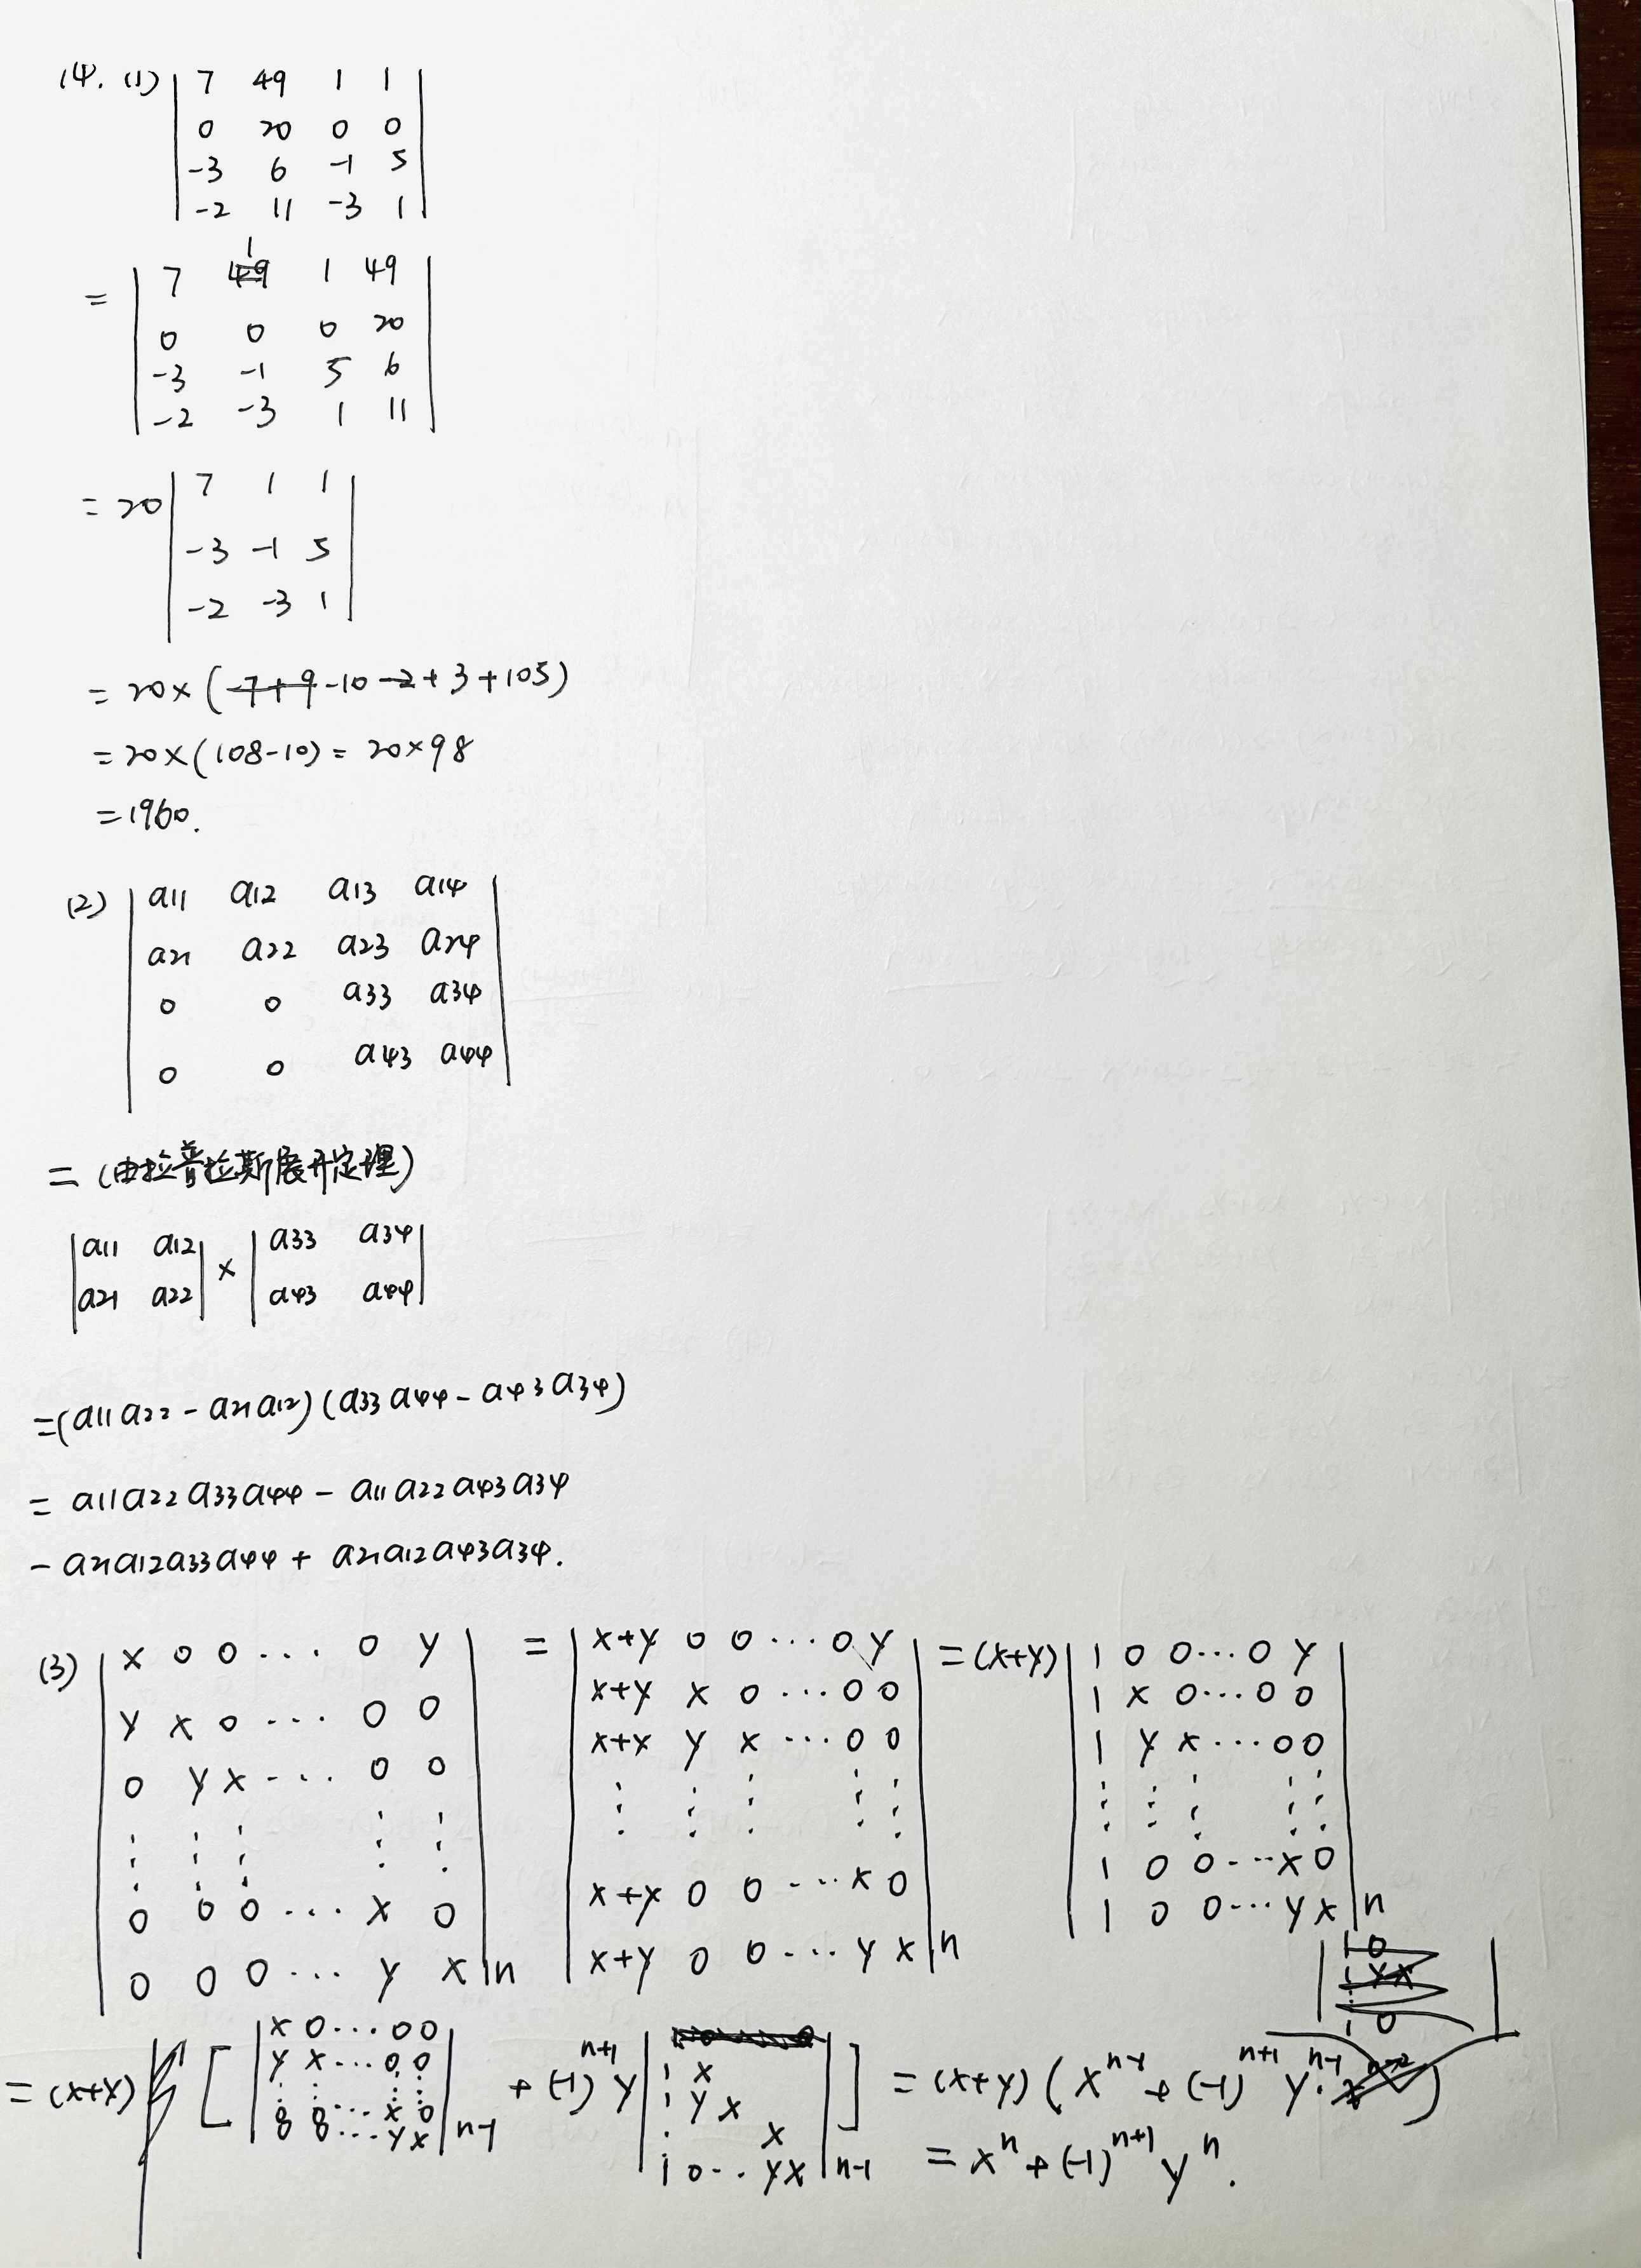 14. (1) | 7 49 1 1 |
| 0 20 0 0 |
| -3 6 -1 5 |
| -2 11 -3 1 |
= | 7 1 1 49 |
| 0 0 0 20 |
| -3 -1 5 6 |
| -2 -3 1 11 |
= 20 | 7 1 1 |
| -3 -1 5 |
| -2 -3 1 |
= 20×(-7+9-10-2+3+105)
= 20×(108-10) = 20×98
= 1960.
(2) | a11 a12 a13 a14 |
| a21 a22 a23 a24 |
| 0 0 a33 a34 |
| 0 0 a43 a44 |
= (由拉普拉斯展开定理)
| a11 a12 | × | a33 a34 |
| a21 a22 | | a43 a44 |
= (a11a22 - a21a12)(a33a44 - a43a34)
= a11a22a33a44 - a11a22a43a34
- a21a12a33a44 + a21a12a43a34.
(3) | x 0 0 ... 0 y | = | x+y 0 0 ... 0 y | = (x+y) | 1 0 0 ... 0 y |
| y x 0 ... 0 0 | | x+y x 0 ... 0 0 | | 1 x 0 ... 0 0 |
| 0 y x ... 0 0 | | x+x y x ... 0 0 | | 1 y x ... 0 0 |
| ⋮ ⋮ ⋮ ⋮ ⋮ | | ⋮ ⋮ ⋮ ⋮ ⋮ | | ⋮ ⋮ ⋮ ⋮ ⋮ |
| 0 0 0 ... x 0 | | x+x 0 0 ... x 0 | | 1 0 0 ... x 0 |
| 0 0 0 ... y x | n | x+y 0 0 ... y x | n | 1 0 0 ... y x | n
= (x+y) [ | x 0 ... 0 0 | + (-1)^{n+1} y | 1 x | ] = (x+y)(x^{n-1} + (-1)^{n+1} y^{n-1})
| y x ... 0 0 | | 1 y x |
| ⋮ ⋮ ⋮ ⋮ | | . x |
| 0 0 ... x 0 | | 1 0 .. y x | n-1
| 0 0 ... y x | n-1
= x^n + (-1)^{n+1} y^n.